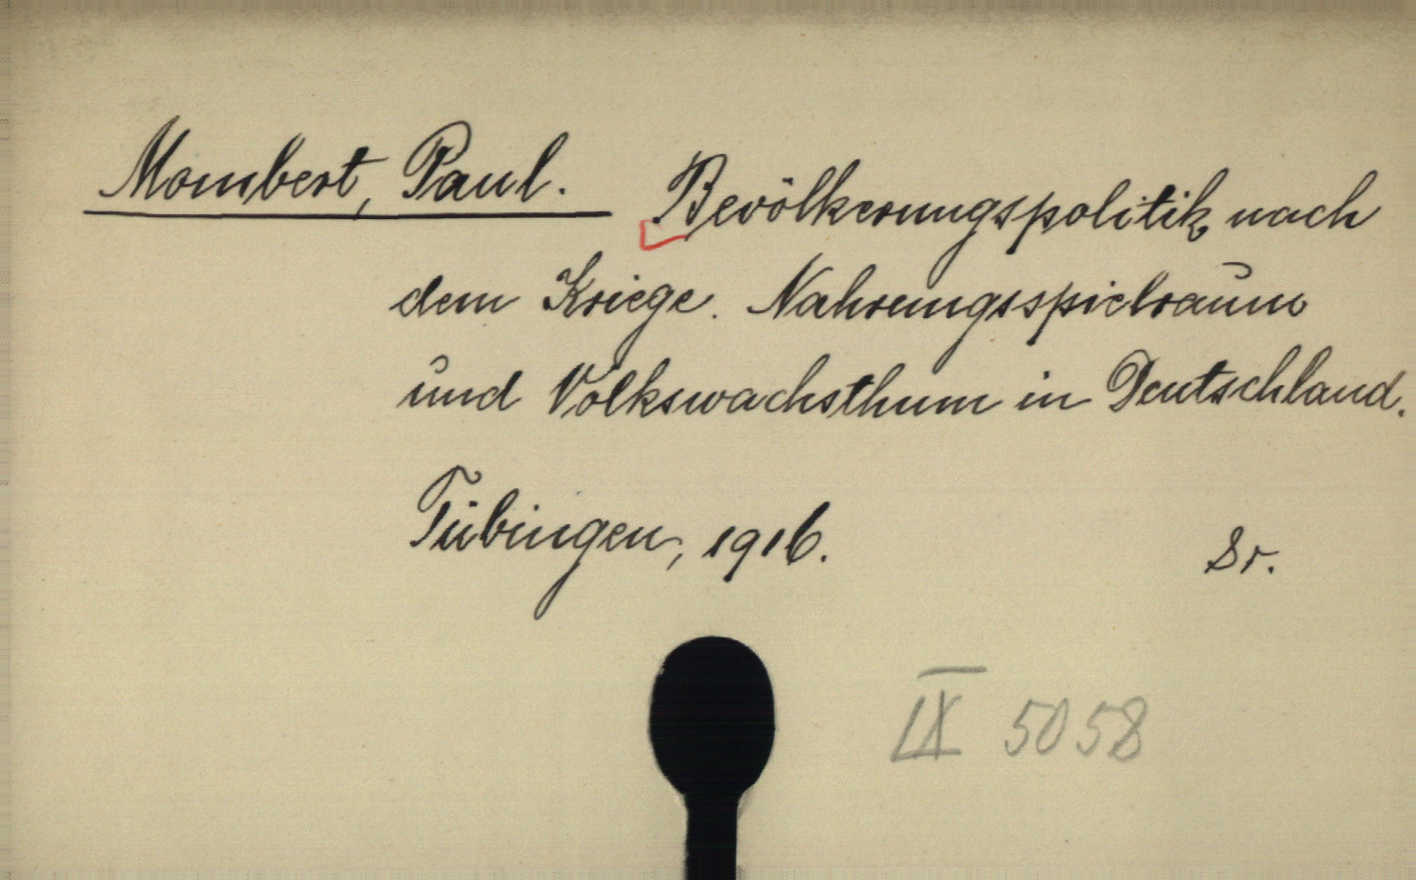 Mombert, Paul. Bevölkerungspolitik nach
dem Kriege. Nahrungsspielraum
und Volkswachsthum in Deutschland.
Tübingen, 1916. 8r.
IX 5058